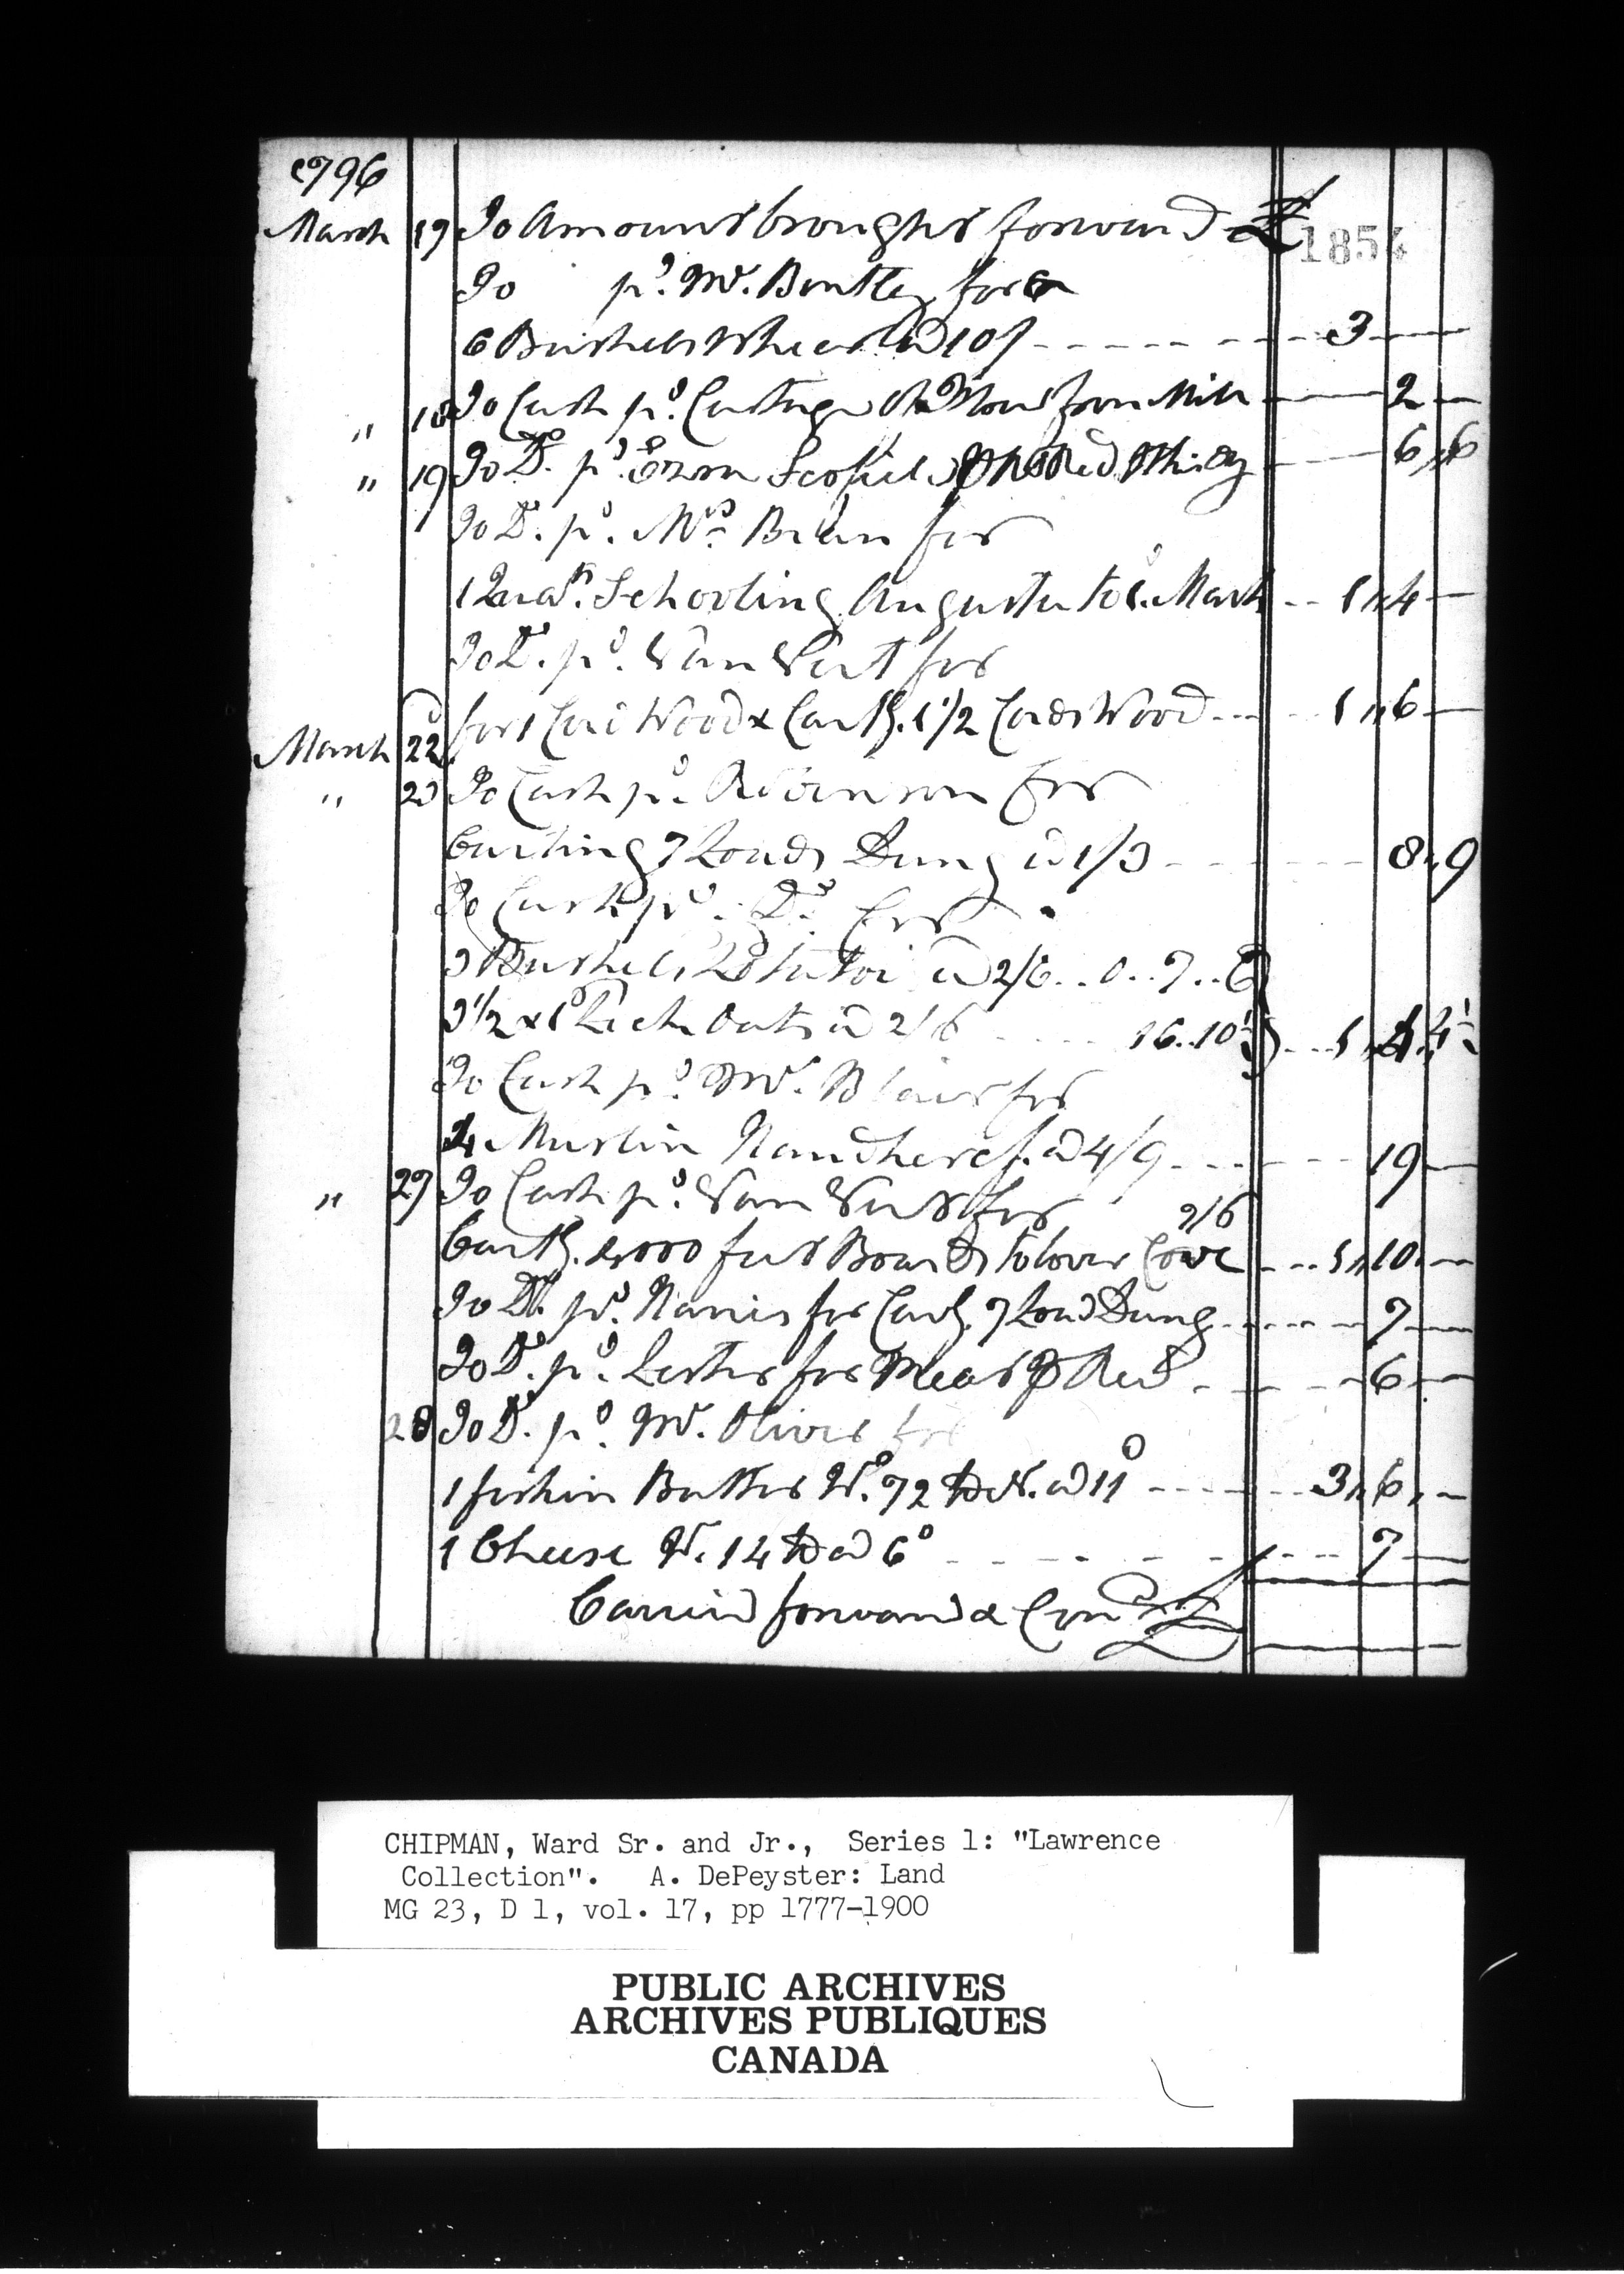 1796
March 17 To Amount brought forward £
1854
To pd. Mr. Bentley for
6 Bushels Wheat @ 10/ - - - - - - 3 —
" 18 To Cash pd. Cartage from Mill — 2 —
" 19 To Do. pd. Scofield — 6 " 6
To Do. pd. Mrs. Brian for
1 Quar. Schooling Augusta to 1. March - - 1 " 4 —
To Do. pd. Van Vert for
for 1 Cord Wood & Cartg. 1 1/2 Cords Wood - - - 1 " 6 —
March 22
" 23 To Cash pd. Robinson for
Carting 7 Loads Dung @ 1/3 - - - 8 " 9
To Cash pd. Do. for
3 Bushels Potatoi @ 2/6 . . 0 . . 7 . . 6
Oats @ 2/6 - - - 16 . . 10 1/2 } - - 1 " 4 . 4 1/2
To Cash pd. Mr. Blair for
4 Muslin Handkercf. @ 4/9 - - - 19 —
" 27 To Cash pd. Van Vert for
Cartg. 4000 feet Boards to lower Cove - - - 1 " 10 —
To Do. pd. Harris for Cartg. 7 Load Dung - - - 7 —
To Do. pd. Lester for Meat - - - 6 —
28 To Do. pd. Mr. Oliver for
1 firkin Butter Wt. 72 lb @ 11d - - - 3 " 6 " —
1 Cheese Wt. 14 lb @ 6d - - - 7 —
Carried forward & Cond. £
CHIPMAN, Ward Sr. and Jr., Series 1: "Lawrence
Collection". A. DePeyster: Land
MG 23, D 1, vol. 17, pp 1777-1900
PUBLIC ARCHIVES
ARCHIVES PUBLIQUES
CANADA